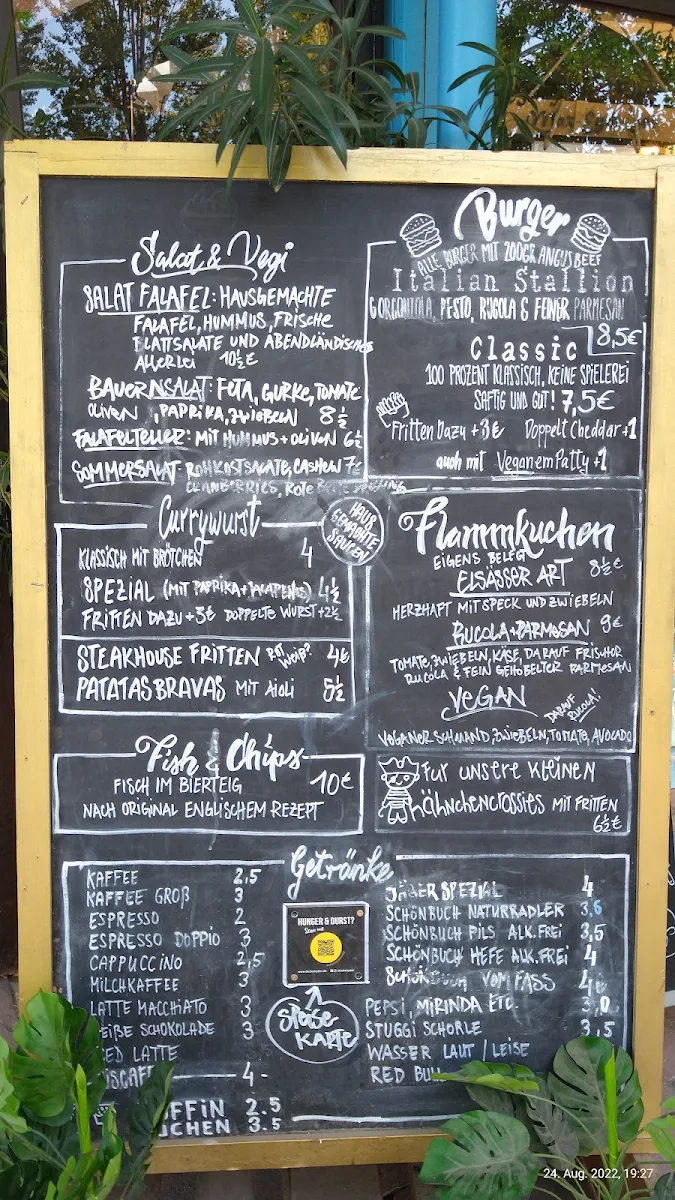 Salat & Vegi
SALAT FALAFEL: HAUSGEMACHTE
FALAFEL, HUMMUS, FRISCHE
BLATTSALATE UND ABENDLÄNDISCHES
ALLERLEI 10½€
BAUERNSALAT: FETA, GURKE, TOMATE
OLIVEN, PAPRIKA, ZWIEBELN 8½
FALAFELTELLER: MIT HUMMUS + OLIVEN 6½
SOMMERSALAT ROHKOSTSALATE, CASHEW 7€
CRANBERRIES, ROTE
Burger
ALLE BURGER MIT 200GR ANGUS BEEF
Italian Stallion
GORGONZOLA, PESTO, RUGOLA & FEINER PARMESAN
8,5€
Classic
100 PROZENT KLASSISCH, KEINE SPIELEREI
SAFTIG UND GUT! 7,5€
Fritten Dazu +3€ Doppelt Cheddar +1
auch mit Veganem Patty +1
Currywurst
KLASSISCH MIT BRÖTCHEN 4
SPEZIAL (MIT PAPRIKA + JALAPENOS) 4½
FRITTEN DAZU +3€ DOPPELTE WURST +2½
HAUS
GEMACHTE
SAUCEN
STEAKHOUSE FRITTEN ROT WEIß? 4€
PATATAS BRAVAS MIT AIOLI 5½
Flammkuchen
EIGENS BELEGT
ELSÄSSER ART 8½€
HERZHAFT MIT SPECK UND ZWIEBELN
RUCOLA + PARMESAN 9€
TOMATE, ZWIEBELN, KÄSE, DARAUF FRISCHER
RUCOLA & FEIN GEHOBELTER PARMESAN
VEGAN
DARAUF RUCOLA!
VEGANER SCHMAND, ZWIEBELN, TOMATE, AVOCADO
Fish & Chips
FISCH IM BIERTEIG 10€
NACH ORIGINAL ENGLISCHEM REZEPT
Für unsere kleinen
Hähnchencrossies MIT FRITTEN
6½€
Getränke
KAFFEE 2,5
KAFFEE GROß 3
ESPRESSO 2
ESPRESSO DOPPIO 3
CAPPUCCINO 2,5
MILCHKAFFEE 3
LATTE MACCHIATO 3
EIßE SCHOKOLADE 3
CED LATTE
ISCAFE 4-
FFIN 2.5
CHEN 3.5
HUNGER & DURST?
SPEISE
KARTE
SPEZIAL 4
SCHÖNBUCH NATURRADLER 3,6
SCHÖNBUCH PILS ALK.FREI 3,5
SCHÖNBUCH HEFE ALK.FREI 4
SCHÖNBUCH VOM FASS 4
PEPSI, MIRINDA ETC. 3,0
STUGGI SCHORLE 3,5
WASSER LAUT / LEISE
RED BULL
24. Aug. 2022, 19:27